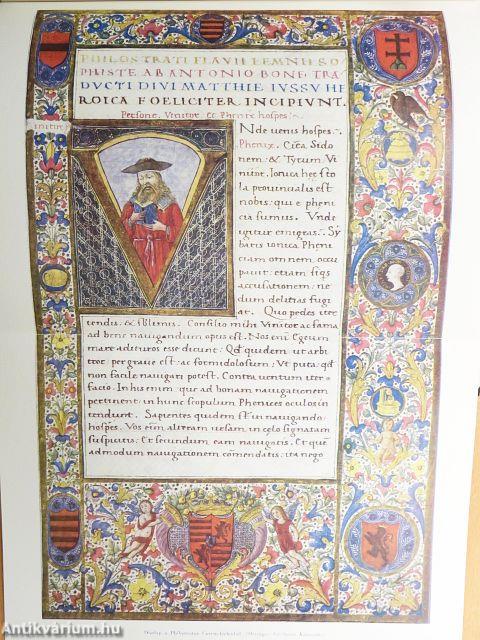 PHILOSTRATI FLAVII LEMNII SO
PHISTE AB ANTONIO BONF. TRA
DVCTI DIVI MATTHIE IVSSV HE
ROICA FOELICITER INCIPIVNT.
Persone. Vinitor et Phenix hospes
Vinitor
Nde uenis hospes.
Phenix. Circa Sido
nem & Tyrum Vi
nitor. Ionica hec sto
la prouincialis est
nobis: qui e pheni
cia sumus. Vnde
igitur emigras. Sy
baris ionica Pheni
ciam omnem occu
pauit: etiam siqs
accusationem: ne
dum delitias fugi
at. Quo pedes iter
tendis: & sblimis. Consilio mihi Vinitor ac fama
ad bene nauigandum opus est. Nos eni Egeum
mare adituros esse dicunt: Qd quidem ut arbi
tror per graue est: ac formidolosum; Vt puta: qd
non facile nauigari potest. Contra uentum iter
facio. In his enim que ad bonam nauigationem
pertinent: in hunc scopulum Phenices oculos in
tendunt. Sapientes quidem estis in nauigando:
hospes. Vos eim alteram ursam in celo signatam
suspicitis: Et secundum eam nauigatis. Et que
admodum nauigationem comendatis: ita nego
Antikvárium.hu